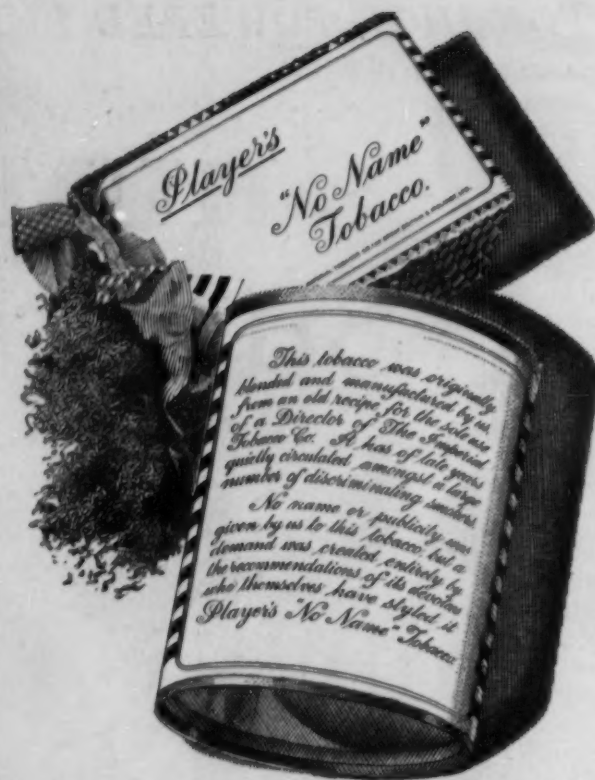 Player's
"No Name"
Tobacco.
This tobacco was originally
blended and manufactured by us,
from an old recipe, for the sole use
of a Director of The Imperial
Tobacco Co. It has of late years
quietly circulated amongst a large
number of discriminating smokers.
No name or publicity was
given by us to this tobacco, but a
demand was created entirely by
the recommendations of its devotees
who themselves have styled it
Player's "No Name" Tobacco